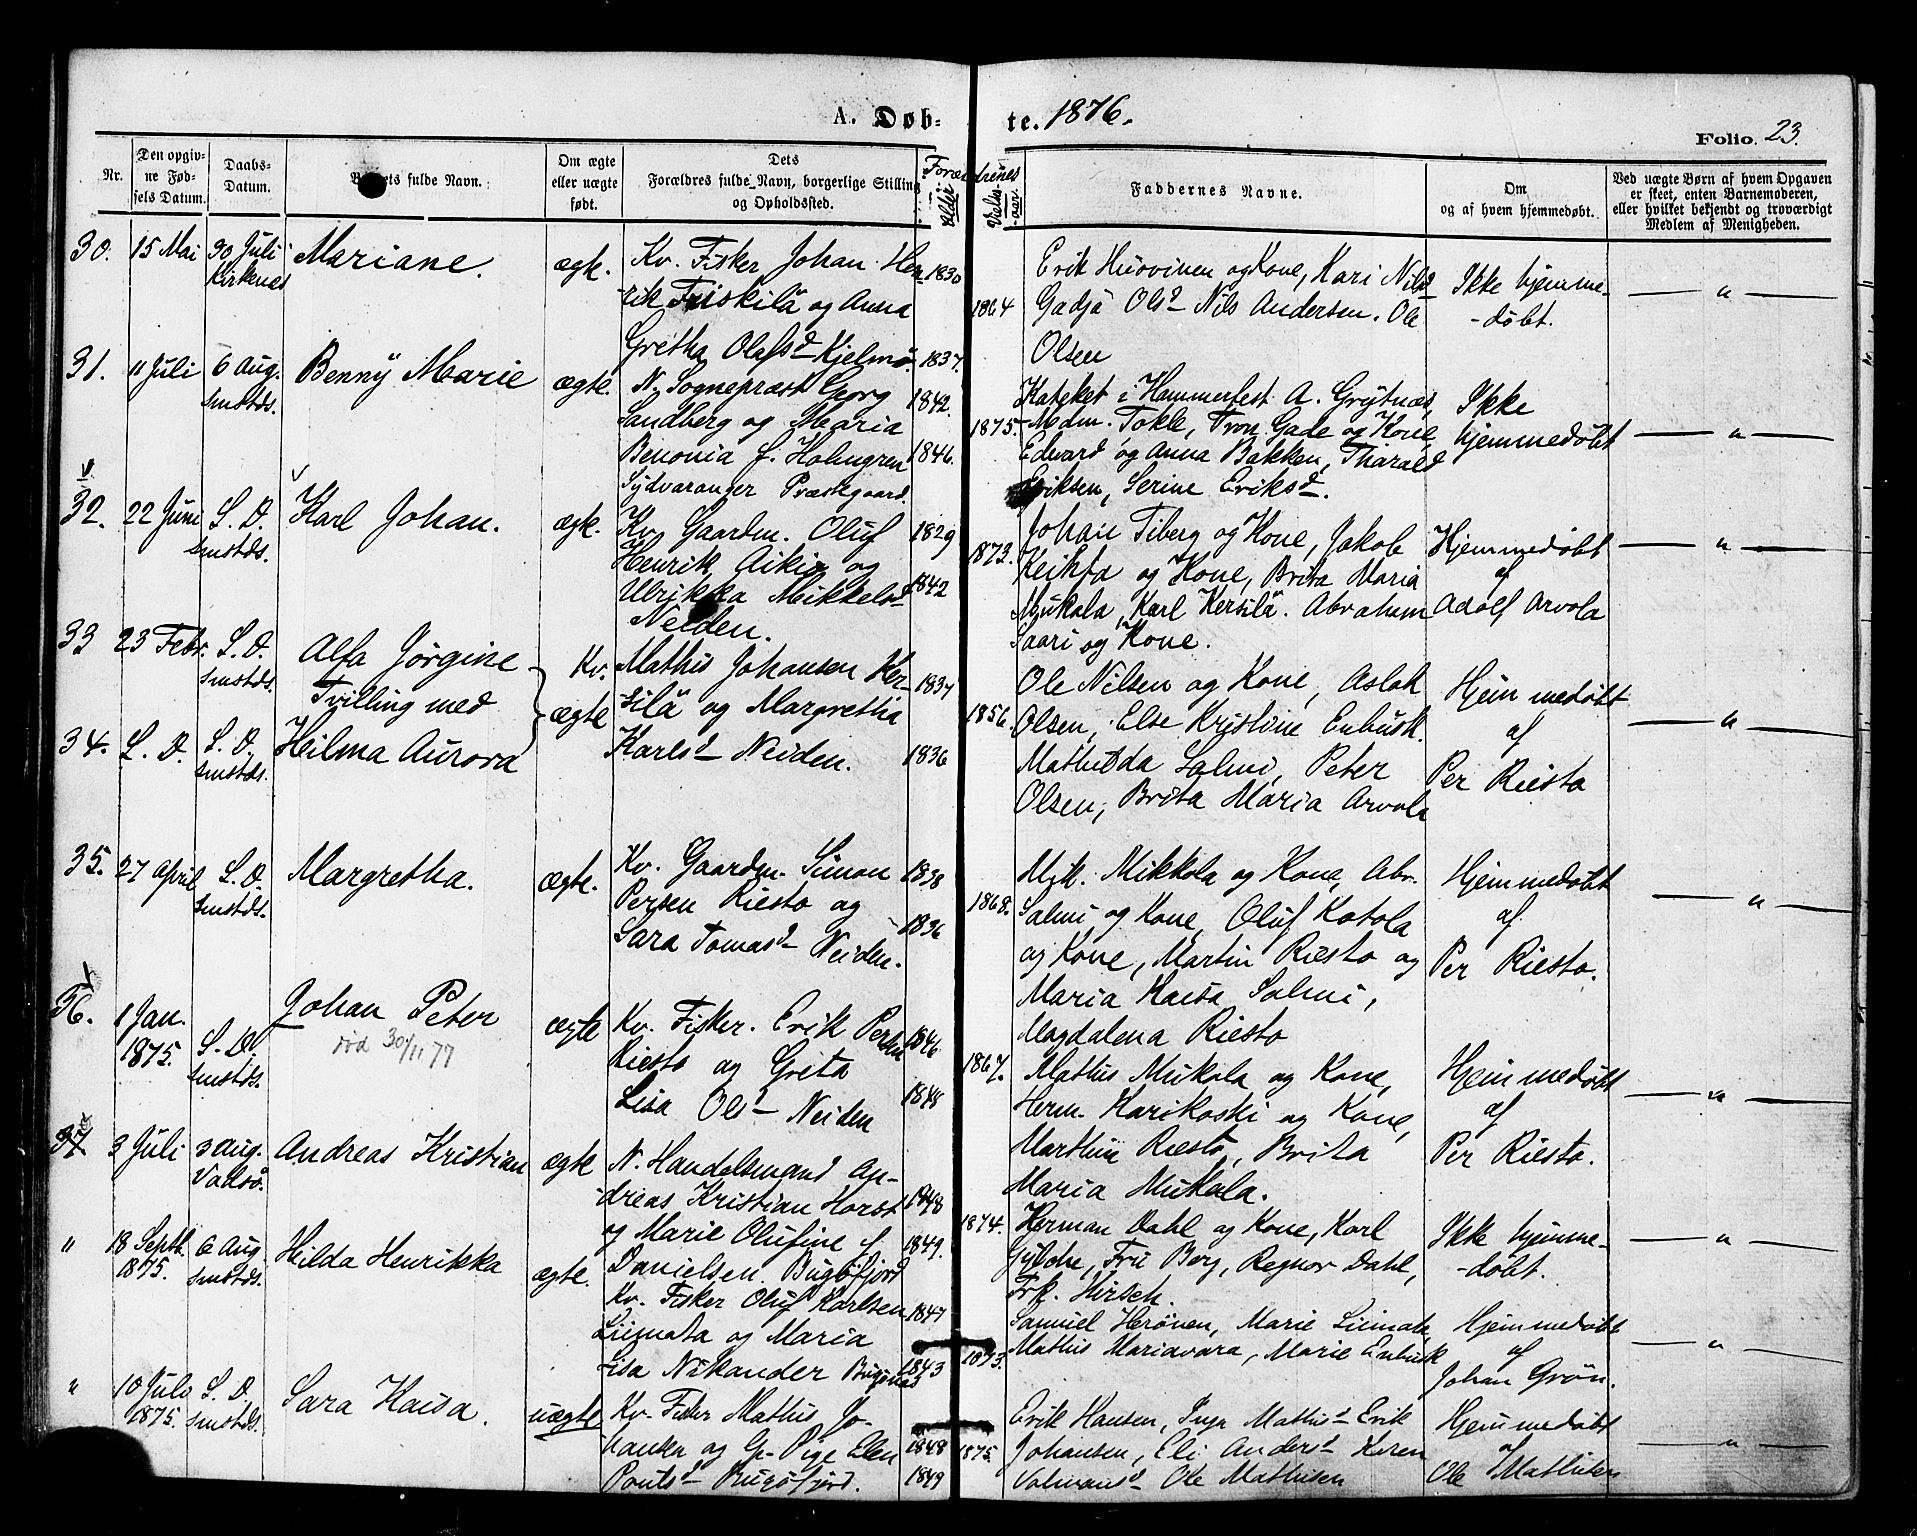 A. Døb-
te. 1876.
Folio. 23.
Nr.
Den opgiv-
ne Fød-
sels Datum.
Daabs-
Datum.
Barnets fulde Navn.
Om ægte
eller uægte
født.
Dets
Forældres fulde Navn, borgerlige Stilling
og Opholdssted.
Forældrenes
Alder
Vielses-
aar.
Faddernes Navne.
Om
og af hvem hjemmedøbt.
Ved uægte Børn af hvem Opgaven
er skeet, enten Barnemoderen,
eller hvilket bekjendt og troværdigt
Medlem af Menigheden.
30. 15 Mai 30 Juli
Kirkenæs
Mariane.
ægte.
Kv. Fisker Johan Hen-
rik Friskilä og Anna
Gretha Olafsd Kjelmø.
1830
1837.
1864
Erik Huovinen og Kone, Kari Nilsd
Gadja Olsd Nils Andersen. Ole
Olsen
Ikke hjemme-
-døbt.
— " —
31. 11 Juli 6 Aug.
smstds.
Benny Marie
ægte.
N. Sogneprest Georg
Sandberg og Maria
Benonia f. Holmgren
Sydvaranger Præstegaard.
1842.
1846.
1875.
Kateket i Hammerfest A. Grytnæs,
Mdm. Tokle, Tron Gade og Kone,
Edvard og Anna Bakken, Tharald
Eriksen, Serine Eriksd.
Ikke
hjemmedøbt
— " —
32. 22 Juni S. D.
smstds.
Karl Johan.
ægte.
Kv. Gaardm. Oluf
Henrik Aikio og
Ulrikka Mikkelsd
Neiden.
1829
1842
1873.
Johan Tiberg og Kone, Jakob
Keihta og Kone, Brita Maria
Mukala, Karl Kersilä. Abraham
Saari og Kone.
Hjemmedøbt
af
Adolf Arvola
— " —
33 23 Febr. S. D.
smstds.
Alfa Jørgine
Tvilling med
34. S. D. S. D.
smstds.
Heilma Aurora
Kv.
ægte
Mathis Johansen Ker-
silä og Margretha
Karlsd Neiden.
1837
1836
1856.
Ole Nilsen og Kone, Aslak
Olsen, Else Kristine Enbusk.
Mathilda Salmi, Peter
Olsen, Brita Maria Arvola
Hjemmedøbt
af
Per Riesto
— " —
35. 27 April S. D.
smstds.
Margretha.
ægte.
Kv. Gaardm. Simon
Persen Riesto og
Sara Tomasd Neiden.
1838
1836
1868.
Mik. Mikkola og Kone, Abr.
Salmi og Kone, Oluf Kotola
og Kone, Martin Riesto og
Maria Kaisa Salmi,
Magdalena Riesto
Hjemmedøbt
af
Per Riesto.
— " —
36. 1 Jan.
1875.
S. D.
smstds.
Johan Peter
død 30/11 77
ægte
Kv. Fisker. Erik Persen
Riesto og Greta
Lisa Olsd Neiden
1846
1848
1867.
Mathis Mukala og Kone,
Herm. Karikoski og Kone,
Marthin Riesto, Brita
Maria Mukala.
Hjemmedøbt
af
Per Riesto.
— " —
37 3 Juli 3 Aug.
Vadsø.
Andreas Kristian
ægte
N. Handelsmand An-
dreas Kristian Horst
og Marie Olufine f.
Danielsen. Bugøfjord
1848
1849.
1874.
Herman Dahl og Kone, Karl
Fru Berg, Regnor Dahl,
Frk. Hirsch.
Ikke hjemme-
-døbt.
— " —
" 18 Septb.
1875.
6 Aug
smstds.
Hilda Henrikka
ægte.
Kv. Fisker Oluf Karlsen
Liimata og Maria
Lisa Nikander Bugønæs
1847
1843
1873.
Samuel Herönen, Marie Liimata,
Mathis Mariavara, Marie Enbusk
Hjemmedøbt
af
Johan Grön.
— " —
" 10 Juli
1875.
S. D.
smstds.
Sara Kaisa.
uægte
Kv. Fisker Mathis Jo-
hansen og Gp. Pige Elen
Pouls.d Bugøfjord.
1848
1849
1875.
Erik Hansen, Inga Mathisd Erik
Johansen, Eli Andersd Keren
Ole Mathisen
Hjemmedøbt
Ole Mathisen
— " —